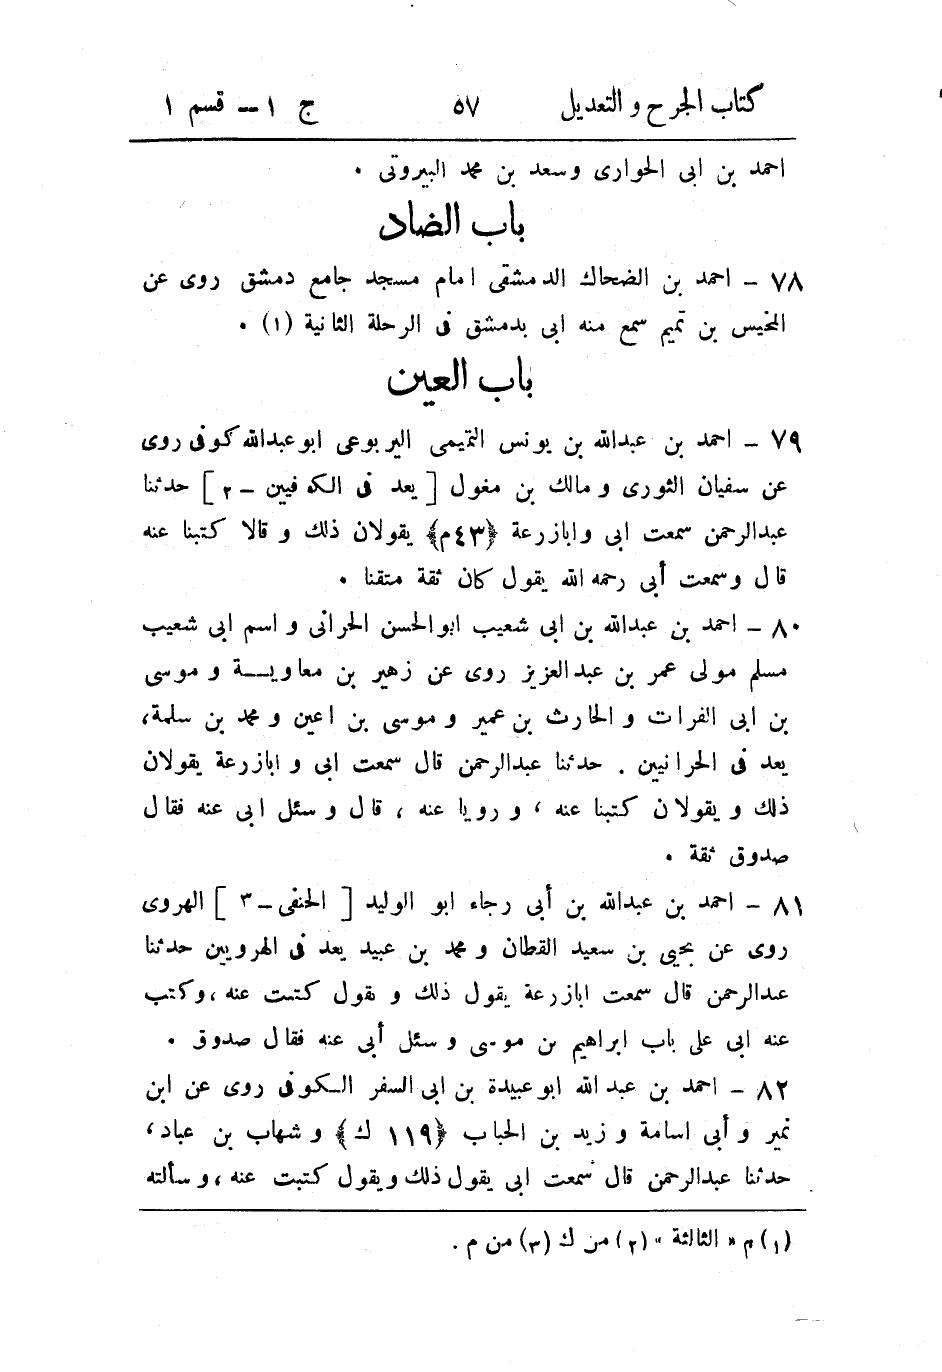 كتاب الجرح والتعديل ٥٧ ج ١ – قسم ١
احمد بن ابى الحوارى وسعد بن محمد البيروتى .
باب الضاد
٧٨ – احمد بن الضحاك الدمشقى امام مسجد جامع دمشق روى عن
المخيس بن تميم سمع منه ابى بدمشق فى الرحلة الثانية (١) .
باب العين
٧٩ – احمد بن عبدالله بن يونس التميمى اليربوعى ابو عبدالله كوفى روى
عن سفيان الثورى و مالك بن مغول [ يعد فى الكوفيين – ٢ ] حدثنا
عبدالرحمن سمعت ابى وابازرعة ﴿٤٣م﴾ يقولان ذلك و قالا كتبنا عنه
قال وسمعت أبى رحمه الله يقول كان ثقة متقنا .
٨٠ – احمد بن عبدالله بن ابى شعيب ابوالحسن الحرانى و اسم ابى شعيب
مسلم مولى عمر بن عبدالعزيز روى عن زهير بن معاويـــة و موسى
بن ابى الفرات و الحارث بن عمير و موسى بن اعين و محمد بن سلمة،
يعد فى الحرانيين . حدثنا عبدالرحمن قال سمعت ابى و ابازرعة يقولان
ذلك و يقولان كتبنا عنه ، و رويا عنه ، قال و سئل ابى عنه فقال
صدوق ثقة .
٨١ – احمد بن عبدالله بن أبى رجاء ابو الوليد [ الحنفى – ٣ ] الهروى
روى عن يحيى بن سعيد القطان و محمد بن عبيد يعد فى الهرويين حدثنا
عبدالرحمن قال سمعت ابازرعة يقول ذلك و يقول كتبت عنه ،وكتب
عنه ابى على باب ابراهيم بن موسى و سئل أبى عنه فقال صدوق .
٨٢ – احمد بن عبد الله ابوعبيدة بن ابى السفر الكوفى روى عن ابن
نمير و أبى اسامة و زيد بن الحباب ﴿١١٩ ك﴾ و شهاب بن عباد،
حدثنا عبدالرحمن قال سمعت ابى يقول ذلك ويقول كتبت عنه ،و سألته
(١) م « الثالثة » (٢) من ك (٣) من م .